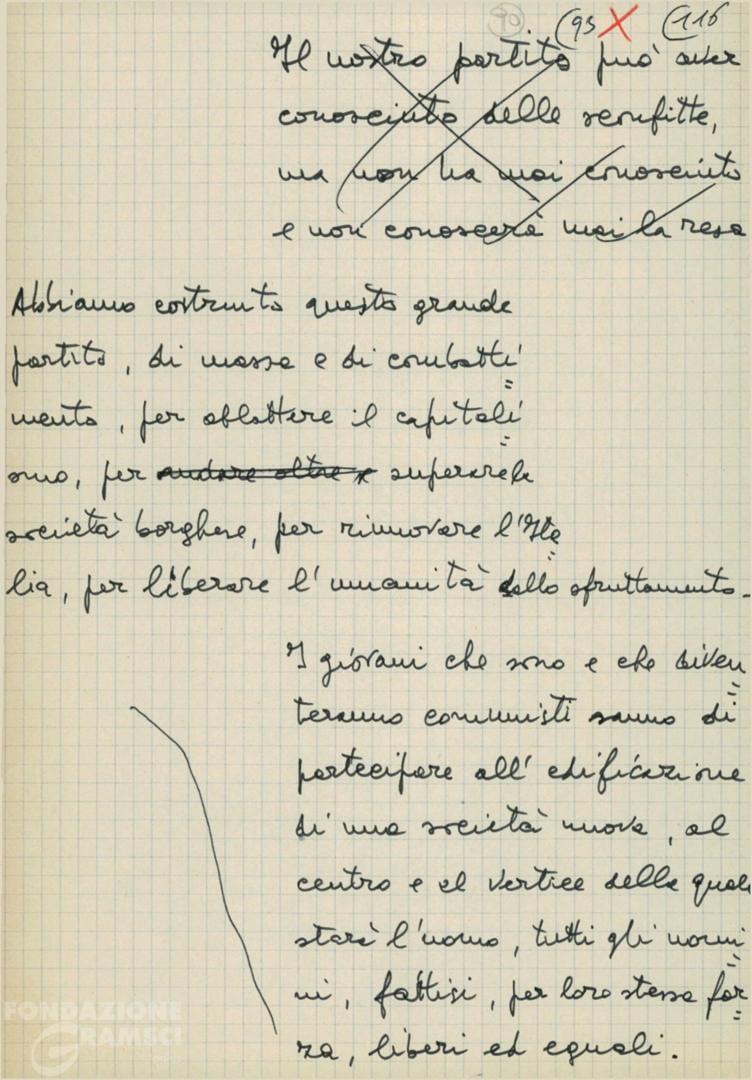 90 (95 X (116
Il nostro partito può aver
conosciuto delle sconfitte,
ma non ha mai conosciuto
e non conoscerà mai la resa
Abbiamo costruito questo grande
partito, di massa e di combatti=
mento, per abbattere il capitali=
smo, per andare oltre e superare la
società borghese, per rinnovare l'Ita=
lia, per liberare l'umanità dallo sfruttamento.
I giovani che sono e che diven=
teranno comunisti sanno di
partecipare all'edificazione
di una società nuova, al
centro e al vertice della quale
starà l'uomo, tutti gli uomi=
ni, fattisi, per loro stessa for=
za, liberi ed eguali.
FONDAZIONE
GRAMSCI